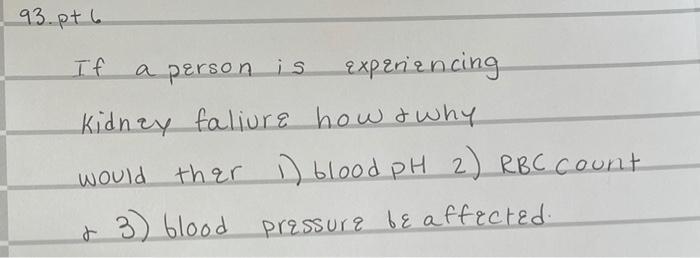 93. pt 6
If a person is experiencing
Kidney faliure how & why
would ther 1) blood pH 2) RBC count
& 3) blood pressure be affected.